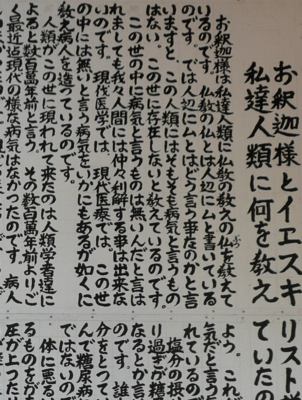 お釈迦様とイエスキ
私達人類に何を教え
お釈迦様は私達人類に仏教の教えの仏を教えて
いるのです。仏教の仏とは人辺にムと書いている
のです。では人辺にムとはどう言う事なのかと言
いますと、この人類にはそもそも病気と言うもの
はない。この世に存在しないと教えているのです。
この世の中に病気と言うものは無いんだと言は
れましても我々人間には仲々利解する事は出来な
いのです。現代医学では、現代医療では、この世
の中には無いと言う病気をいかにもあるが如くに
教え病人を造っているのです。
人類がこの世に現われて来たのは人類学者達に
よると数百萬年前と言う。その数百萬年前よりご
く最近近現代の様な病気はなかったのです。病人
リスト
ていたの
よう。これ
気だと言う
れているの
塩分の摂
り過ぎが糖
なるとか言
のです。誰
分をとって
んで糖尿病
ではないので
体に悪る
るものをが
圧が上った